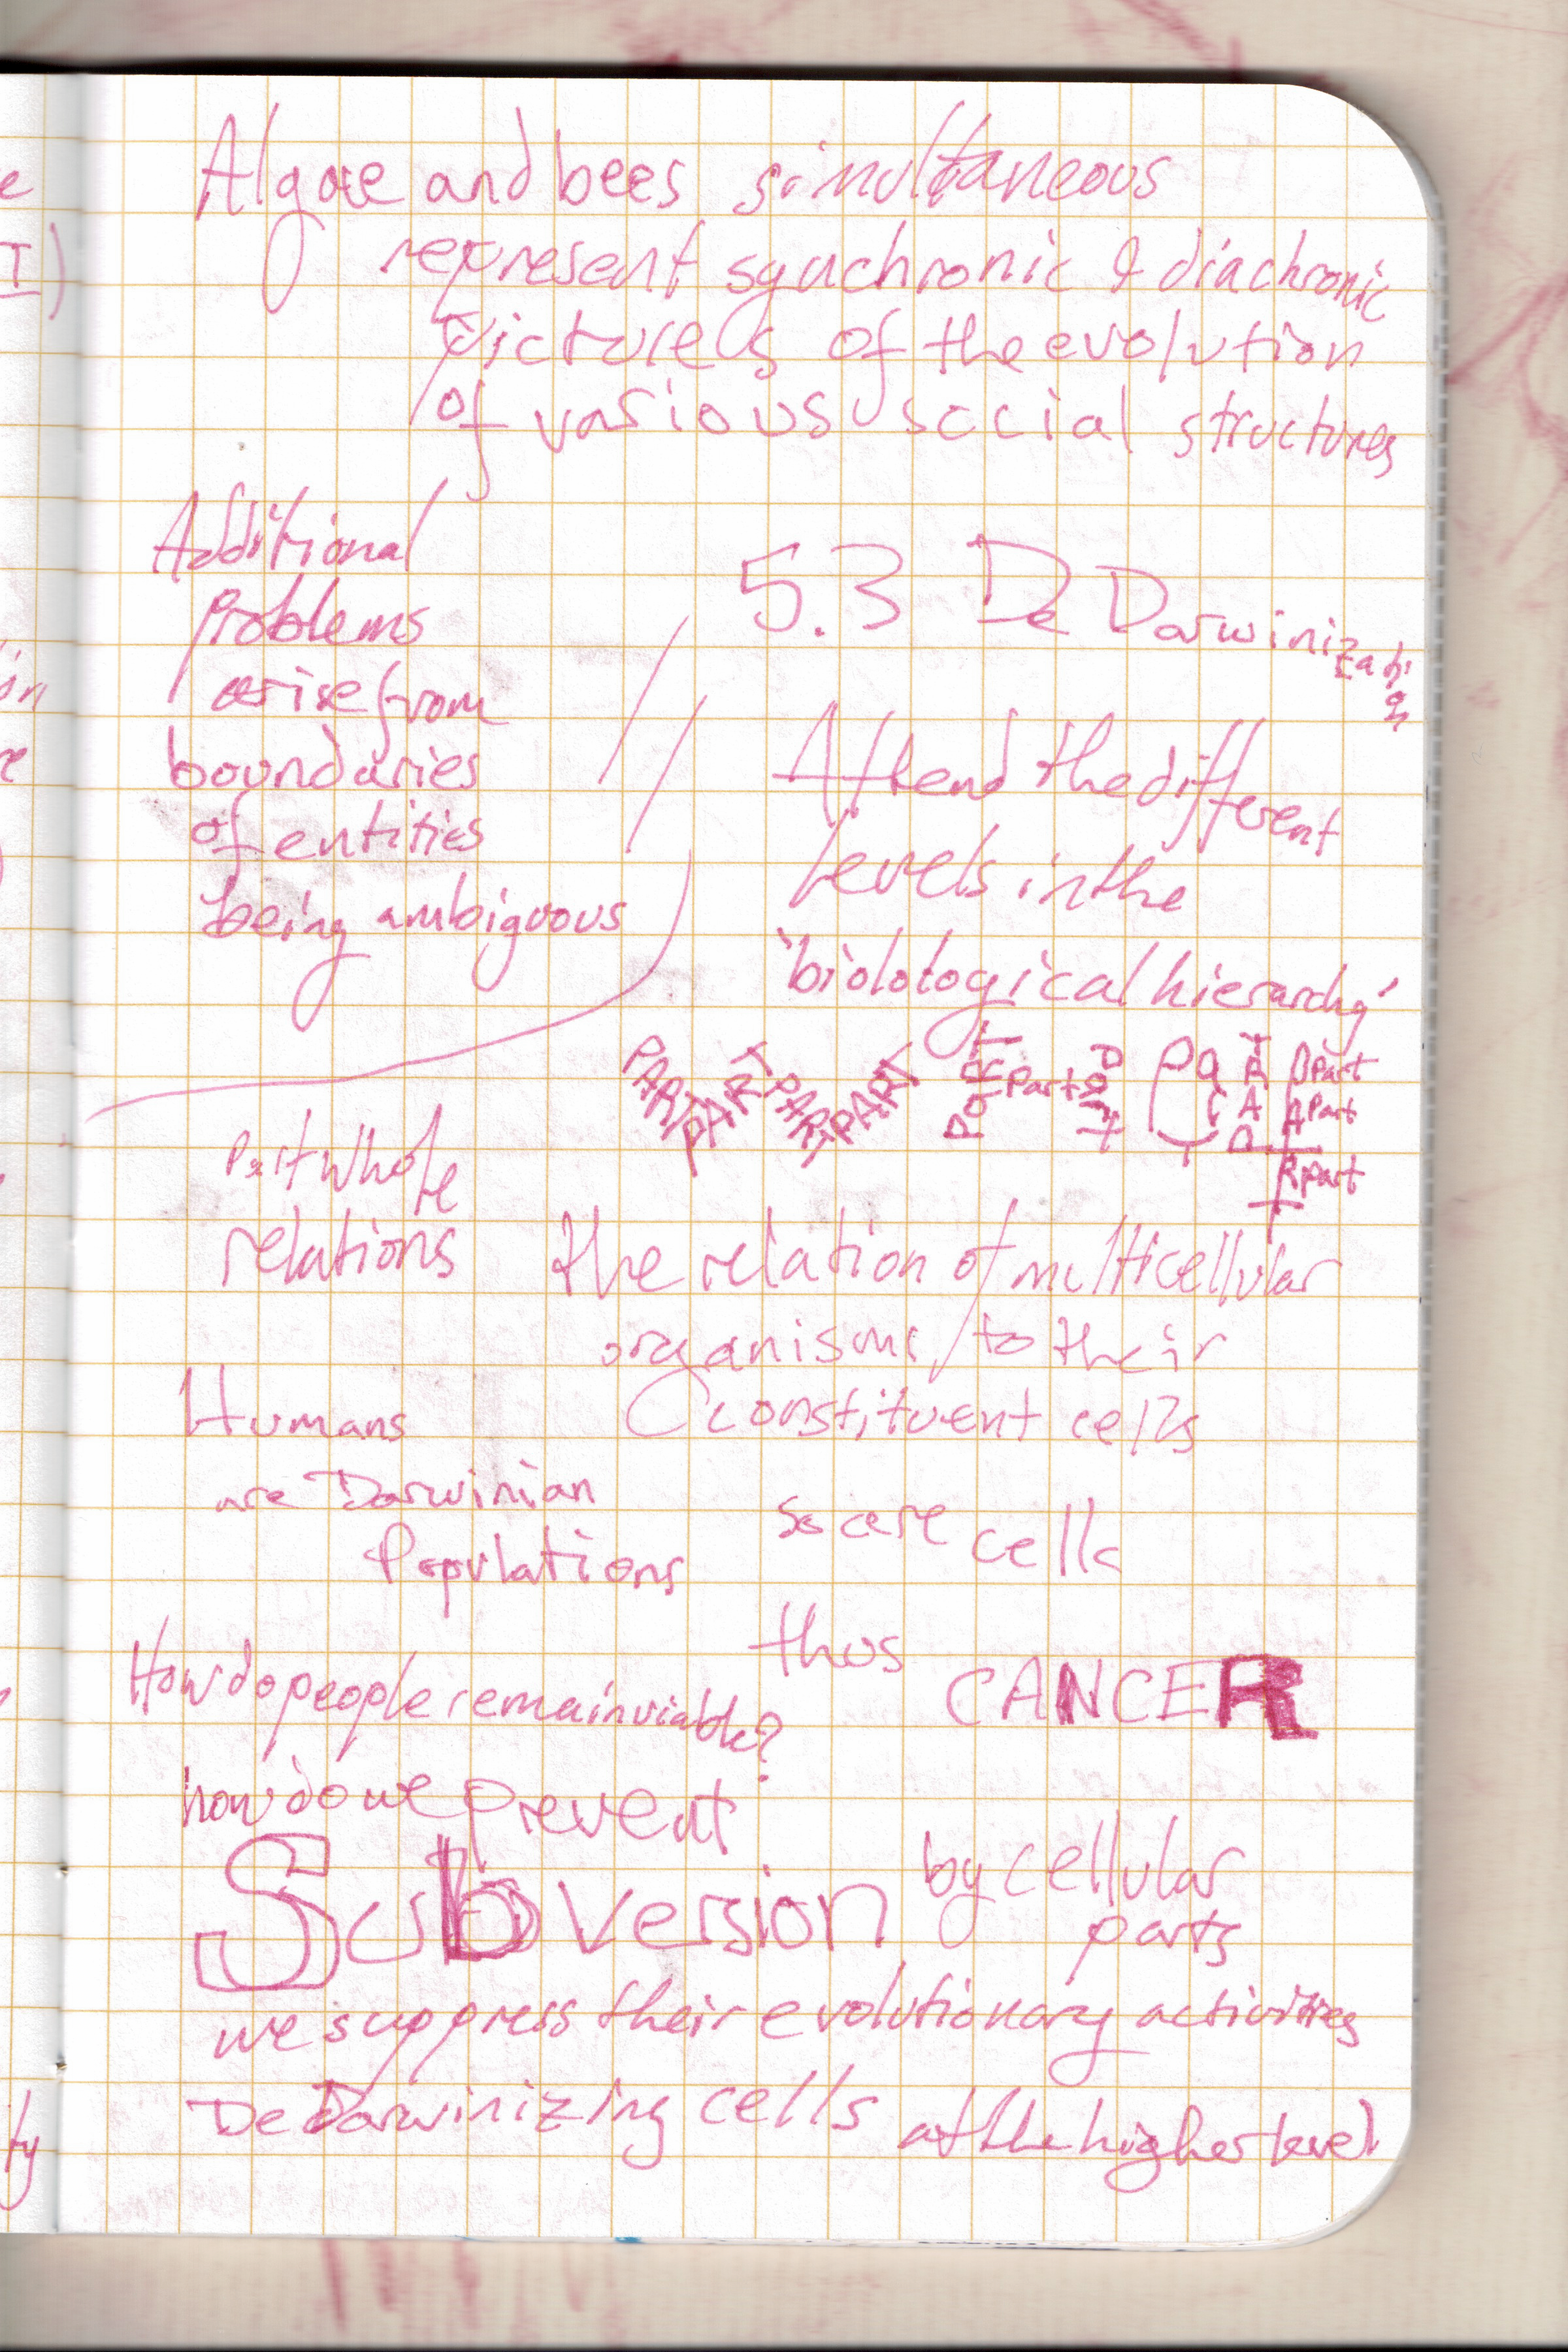 Algae and bees simultaneous
represent synchronic & diachronic
pictures of the evolution
of various social structures
Additional
problems
arise from
boundaries
of entities
being ambiguous
5.3 De Darwinization
Attend the different
levels in the
'biolological hierarchy'
PART PART PART PART Part Part Part Part PART PART Part Part Part
Part Whole
relations
the relation of multicellular
organisms to their
constituent cells
Humans
are Darwinian
Populations
so are cells
thus CANCER
How do people remain viable?
how do we prevent
Subversion by cellular
parts
we suppress their evolutionary activities
De Darwinizing cells at the higher level
e
I)
on
e
ty